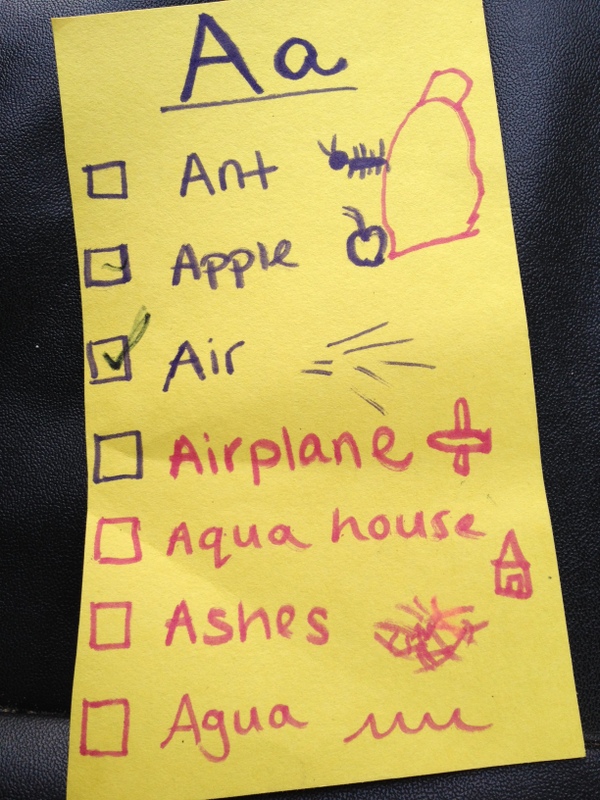 Aa
Ant
Apple
Air
Airplane
Aqua house
Ashes
Agua